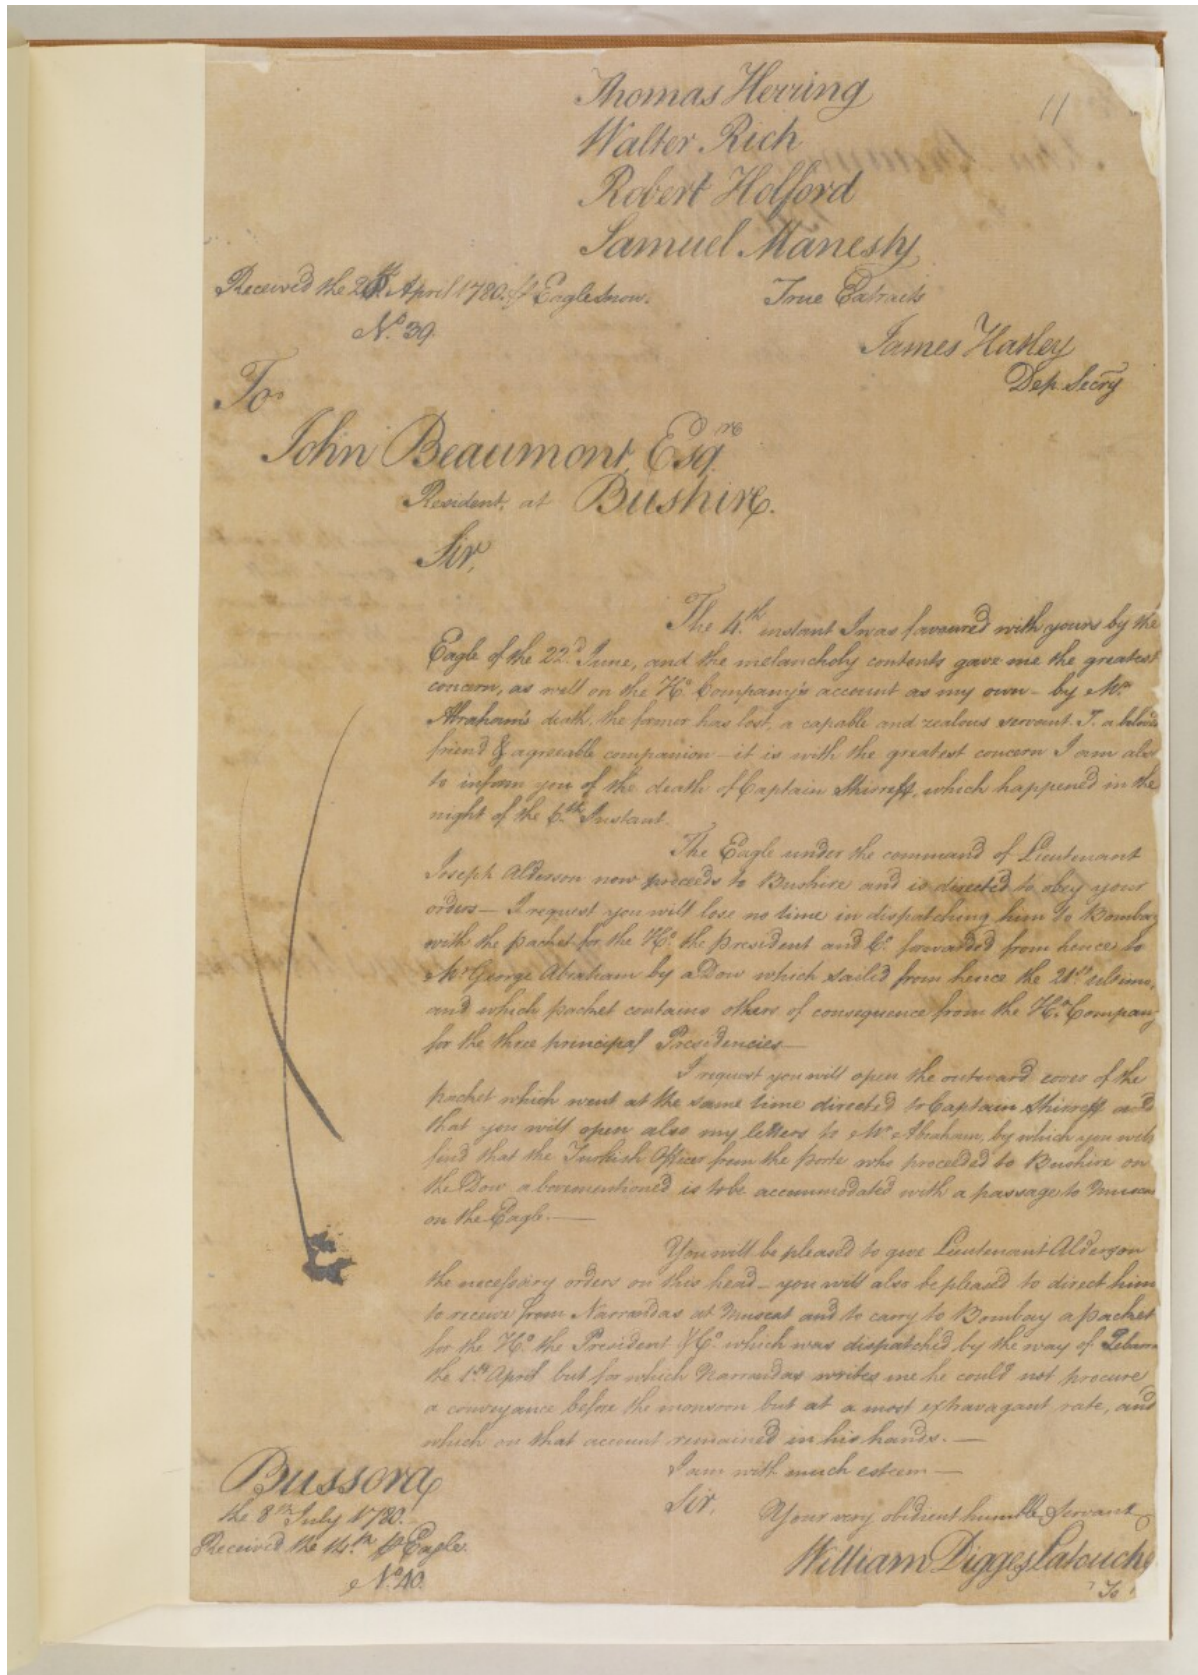 11
Thomas Herring
Walter Rich
Robert Holford
Samuel Manesty
Received the April 1780. ⅌ Eagle Snow.
True Extracts
No. 39.
James Hatley
Dep. Secry
To
John Beaumont, Esqre
Resident, at Bushire.
Sir,
The 4.th instant I was favoured with yours by the
Eagle of the 22d. June, and the melancholy contents gave me the greatest
concern, as well on the Ho. Company's account as my own - by Mr.
Abraham's death, the former has lost, a capable and zealous servant. I. a
friend & agreeable companion - it is with the greatest concern I am also
to inform you of the death of Captain Shirreff, which happened in the
night of the 6.th Instant.
The Eagle under the command of Lieutenant
Joseph Alderson now proceeds to Bushire and is directed to obey your
orders - I request you will lose no time in dispatching him to Bombay
with the packet for the Ho. the president and Co. forwarded from hence to
Mr George Abraham by a Dow which sailed from hence the 21.st ultimo,
and which packet contains others of consequence from the Ho. Company
for the three principal Presidencies —
I request you will open the outward cover of the
packet which went at the same time directed to Captain Shirreff and
that you will open also my letters to Mr. Abraham, by which you will
find that the Turkish Officer from the Porte who proceeded to Bushire on
the Dow abovementioned is to be accommodated with a passage to Muscat
on the Eagle. —
You will be pleased to give Lieutenant Alderson
the necessary orders on this head - you will also be pleased to direct him
to receive from Narrandas at Muscat and to carry to Bombay a packet
for the Ho. the President & Co. which was dispatched by the way of
the 1st April but for which Narrandas writes me he could not procure
a conveyance before the monsoon but at a most extravagant rate, and
which on that account remained in his hands. —
I am with much esteem —
Bussora
Sir, Your very obedient humble Servant
the 8th July 1780.
Received the 14.th ⅌ Eagle.
William Digges Latouche
No. 40.
To